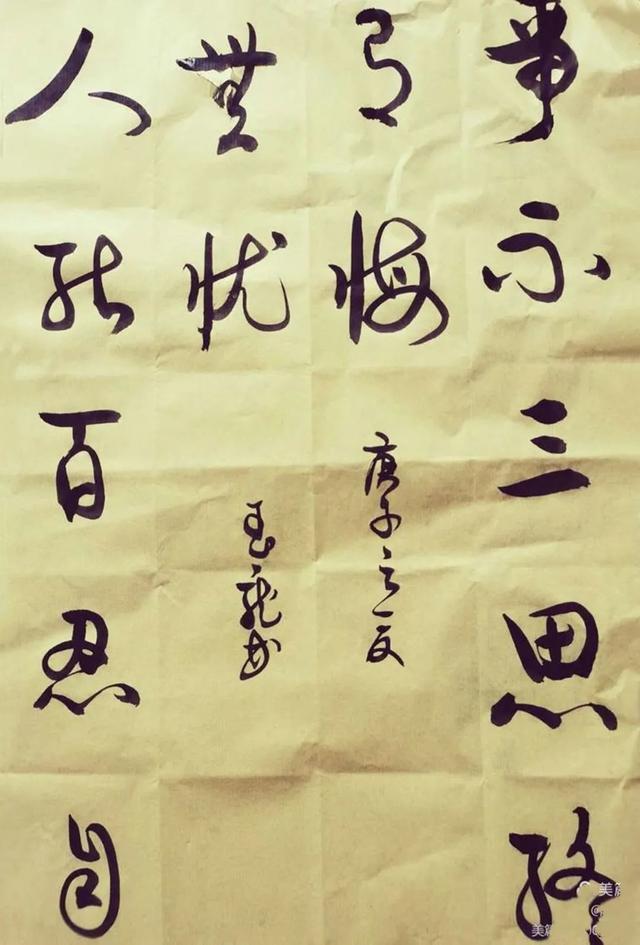 事不三思終
有悔
庚子之夏
人能百忍自
無忧
玉龍书
美篇